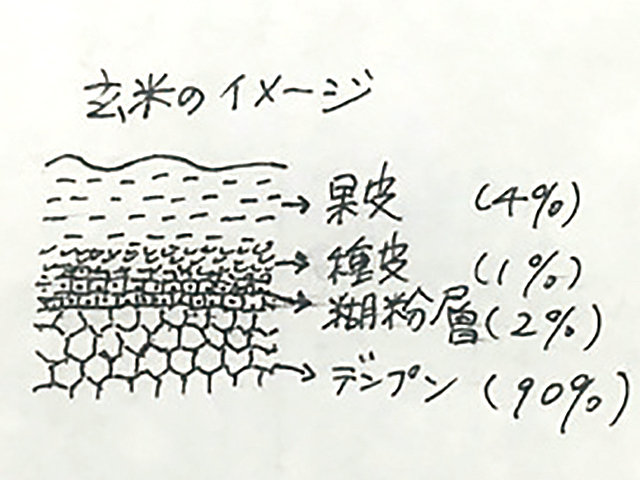 玄米のイメージ
果皮 (4%)
種皮 (1%)
糊粉層 (2%)
デンプン (90%)